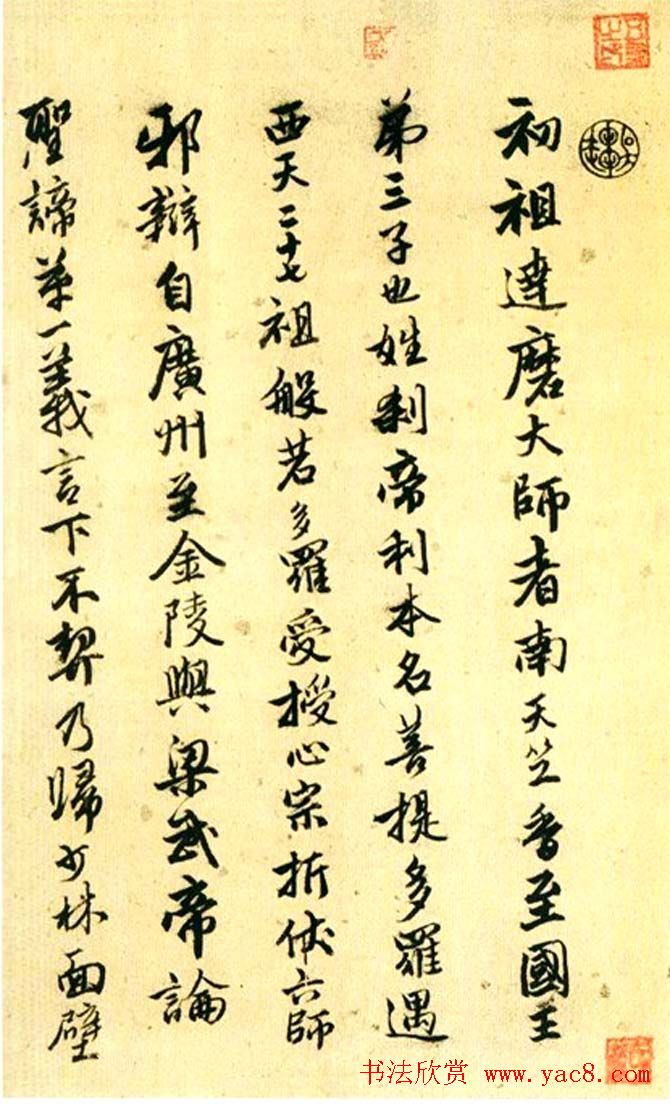 初祖達磨大師者南天竺香至國王
第三子也姓刹帝利本名菩提多羅遇
西天二十七祖般若多羅受授心宗折伏六師
邪辯自廣州至金陵與梁武帝論
聖諦第一義言下不契乃歸少林面壁
书法欣赏 www.yac8.com